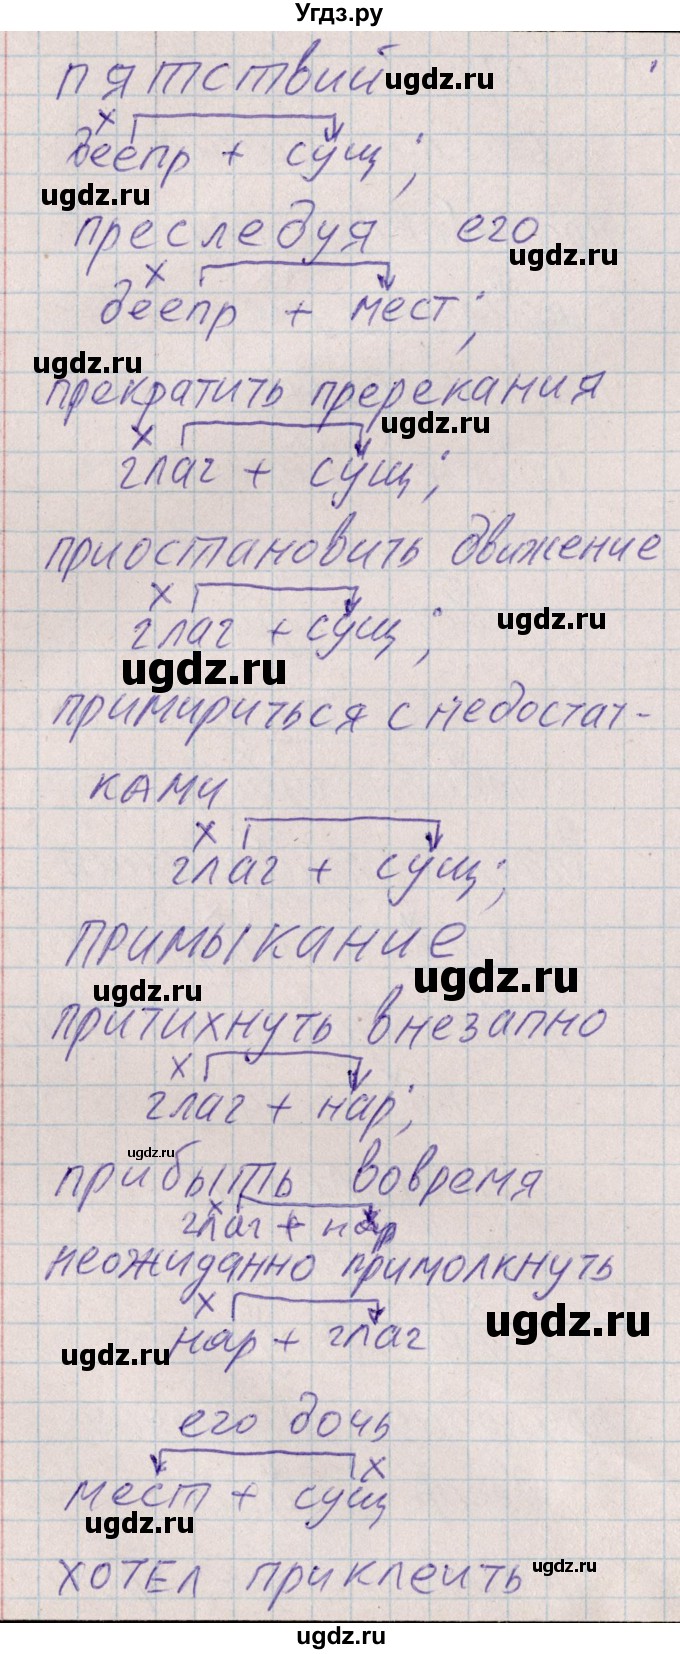 Угдз.ру
пятствий
ugdz.ru
х
деепр + сущ;
ugdz.ru
преследуя его
ugdz.ru
х
деепр + мест;
ugdz.ru
прекратить пререкания
ugdz.ru
х
глаг + сущ;
приостановить движение
х
ugdz.ru
глаг + сущ;
ugdz.ru
примириться с недостат-
ками
х
глаг + сущ;
примыкание
ugdz.ru
ugdz.ru
притихнуть внезапно
х
глаг + нар;
ugdz.ru
прибыть вовремя
х
глаг + нар
неожиданно примолкнуть
х
ugdz.ru
нар + глаг
ugdz.ru
его дочь
х
мест + сущ
ugdz.ru
хотел приклеить
ugdz.ru
ugdz.ru